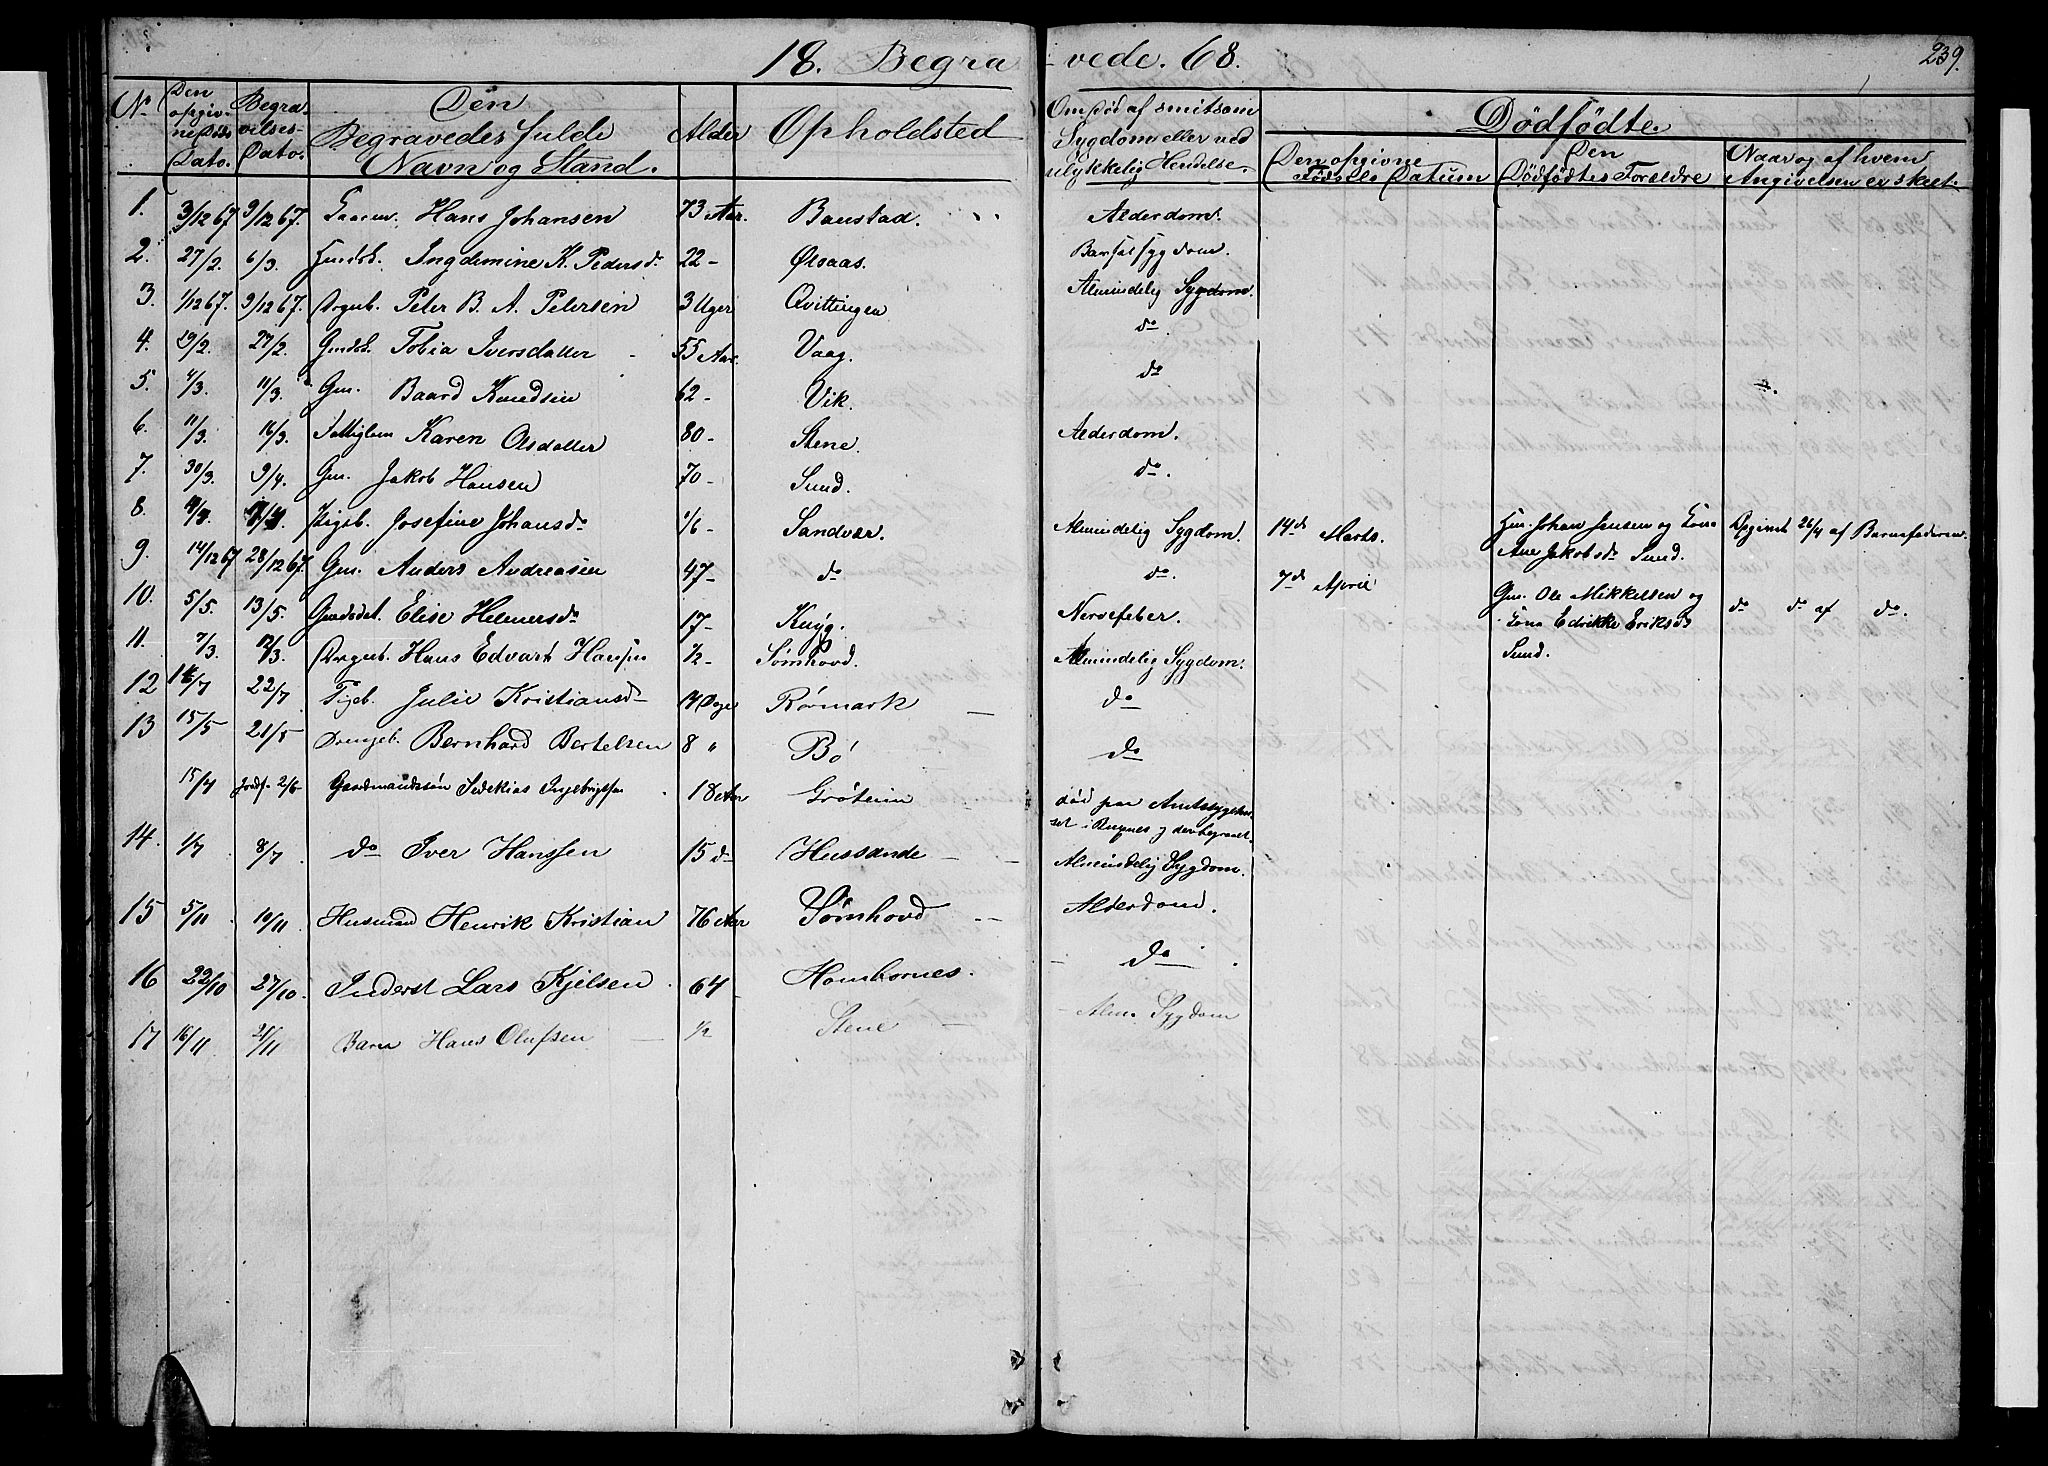 18. Begravede. 68.
239.
No
Den opgivne Døds Dato.
Begravelses-Dato.
Den Begravedes fulde Navn og Stand.
Alder
Opholdsted
Om Død af smitsom Sygdom eller ved ulykkelig Hendelse.
Dödfödte.
Den opgivne Fødsels Datum
Den Dødfødtes Forældre
Naar og af hvem Angivelsen er skeet.
1. 3/12 67 9/12 67. Gaarm. Hans Johansen 73 Aar. Baustad. Alderdom.
2. 27/2. 6/3. Ingdemine K. Pedersd. 22 - Ølsaas. Barselsygdom.
3. 1/12 67. 9/12 67. Drgub. Peter B. A. Petersen 3 Uger Qvittingen Almindelig Sygdom.
4. 19/2. 27/2. Tobia Iversdatter 55 Aar. Vaag. do
5. 4/3. 11/3. Gm. Baard Knudsen 62 - Vik. do
6. 11/3. 16/3. Fattiglem Karen Olsdatter 80 - Stene. Alderdom.
7. 30/3. 9/4. Gm. Jakob Hansen 70 - Sund. do.
8. Pigeb. Josefine Johansdr 1/6 - Sandvær. Almindelig Sygdom. 14d Marts. Gm. Johan Jensen og Kone Ane Jakobsdr Sund. Opgivet 26/4 af Barnefaderen.
9. 14/12 67 28/12 67. Gm. Anders Andreasen 47 - do do. 7d April Gm. Ole Mikkelsen og Kone Edrikke Eriksdr Sund. do do af do.
10. 5/5. 13/5. Elise Helmersdr 17 - Knyg. Nervefeber.
11. 7/3. 12/3. Drgub. Hans Edvart Hansen 1/2 - Sømhovd. Almindelig Sygdom.
12 22/7 Pigeb. Julie Kristiansd 14 Dage Rørmark do
13 15/5 21/5 Drengeb. Bernhard Bertelsen 8 " Bö do
15/4 Jordf. 2/6 Gaardmandssøn Sedekias Ingebrigtsen 18 Aar Grøteim död paa Amtssygehuset i Bugnes og der begravet.
14. 1/7 8/7 do Iver Hanssen 15 do Hussande Almindelig Sygdom.
15 5/11 10/11 Husmand Henrik Kristian 76 Aar Sömhovd Alderdom.
16 22/10 27/10 Inderst Lars Kjelsen 64 Homhornes. do
17 16/11 21/11 Barn Hans Olufsen 1/2 Stene Alm. Sygdom